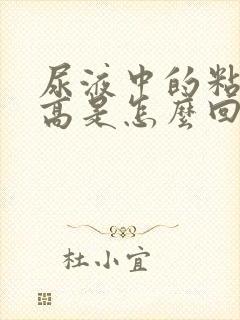 尿液中的粘
高是怎麼回
杜小宜